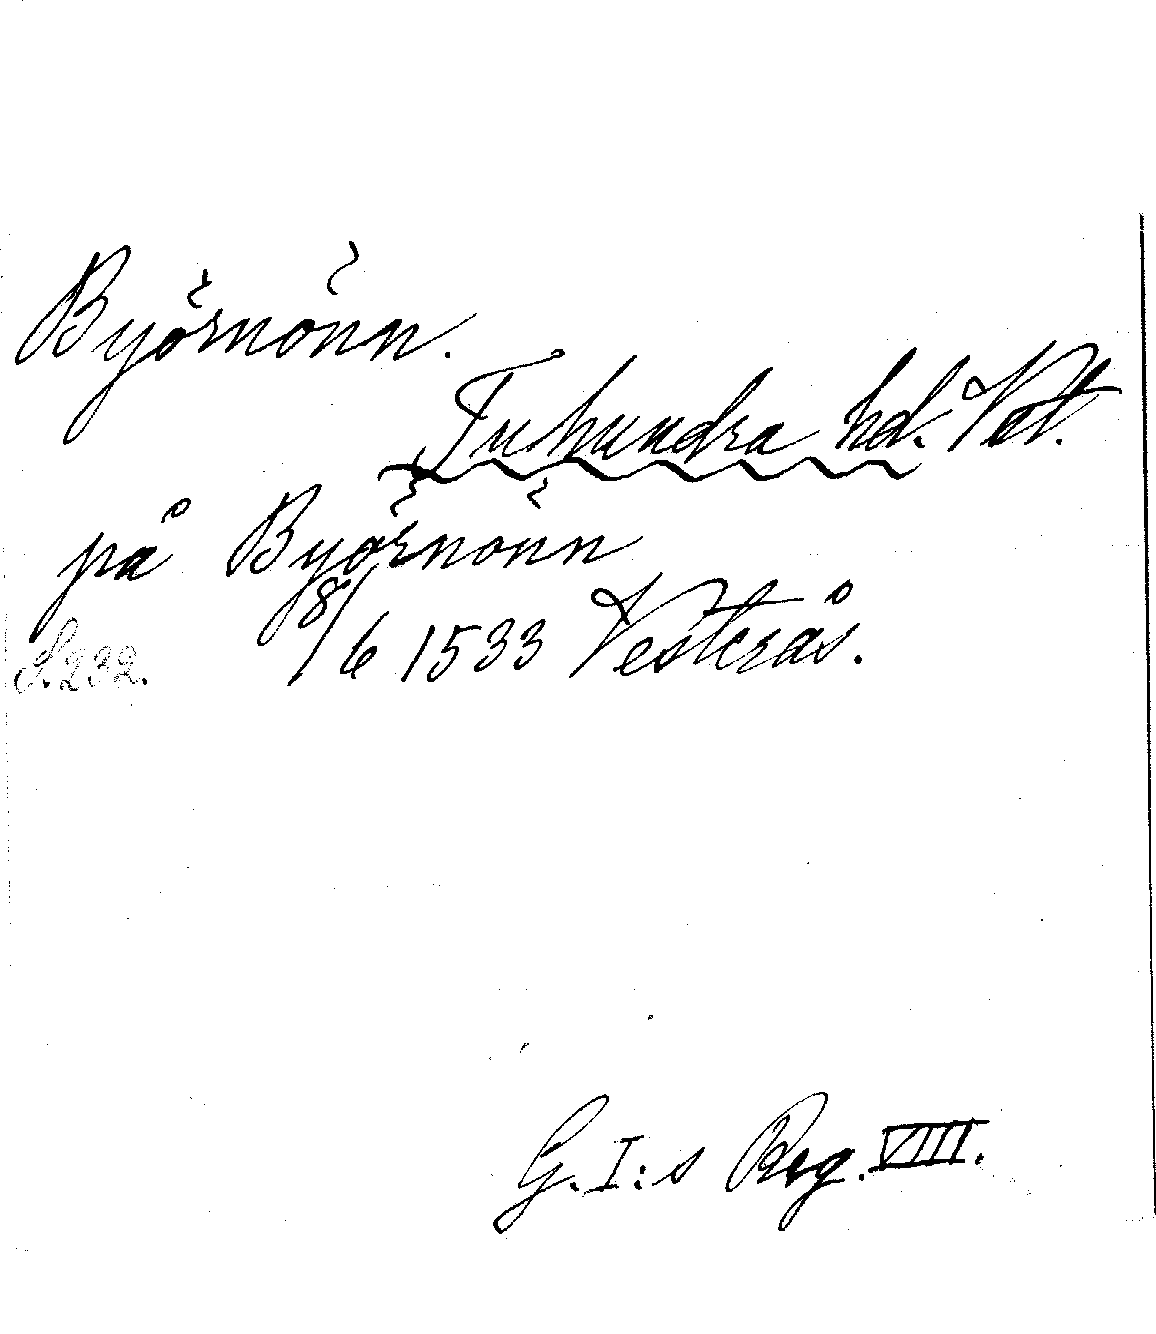 Byörnönn.
Tuhundra hd. Vstl.
på Byörnönn
S. 232. 8/6 1533 Vesterås.
G. I:s Reg. VIII.